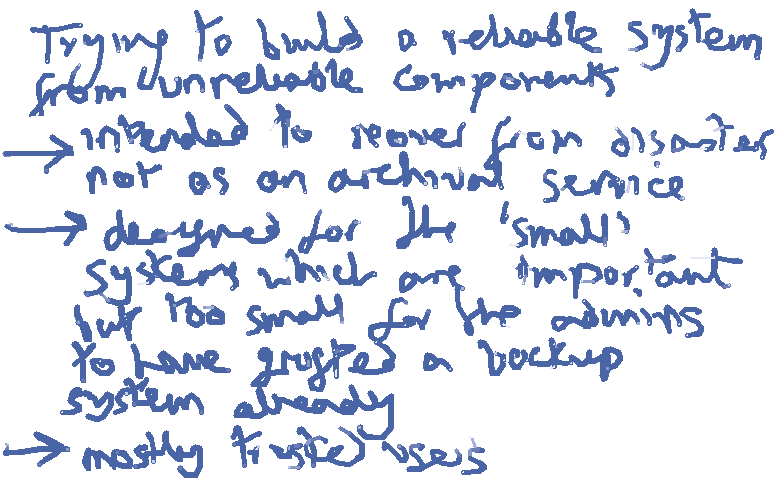 Trying to build a reliable system
from unreliable components
→ intended to recover from disaster
not as an archival service
→ designed for the 'small'
systems which are important
but too small for the admins
to have grafted a backup
system already
→ mostly trusted users